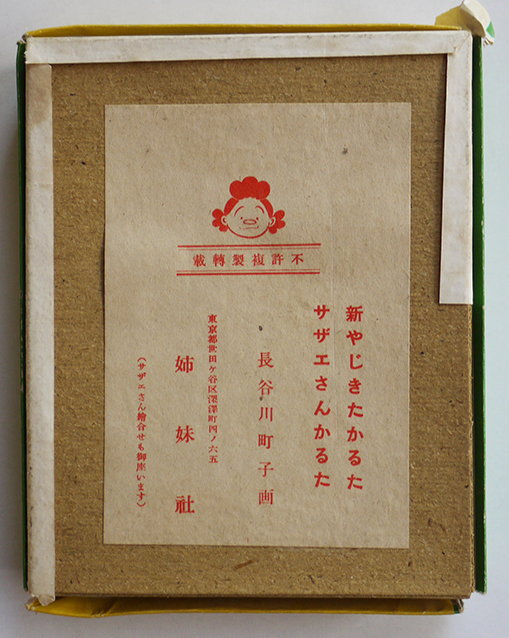 不許複製轉載
新やじきたかるた
サザエさんかるた
長谷川町子画
東京都世田ヶ谷区深澤町四ノ六五
姉妹社
（サザエさん繪合せも御座います）